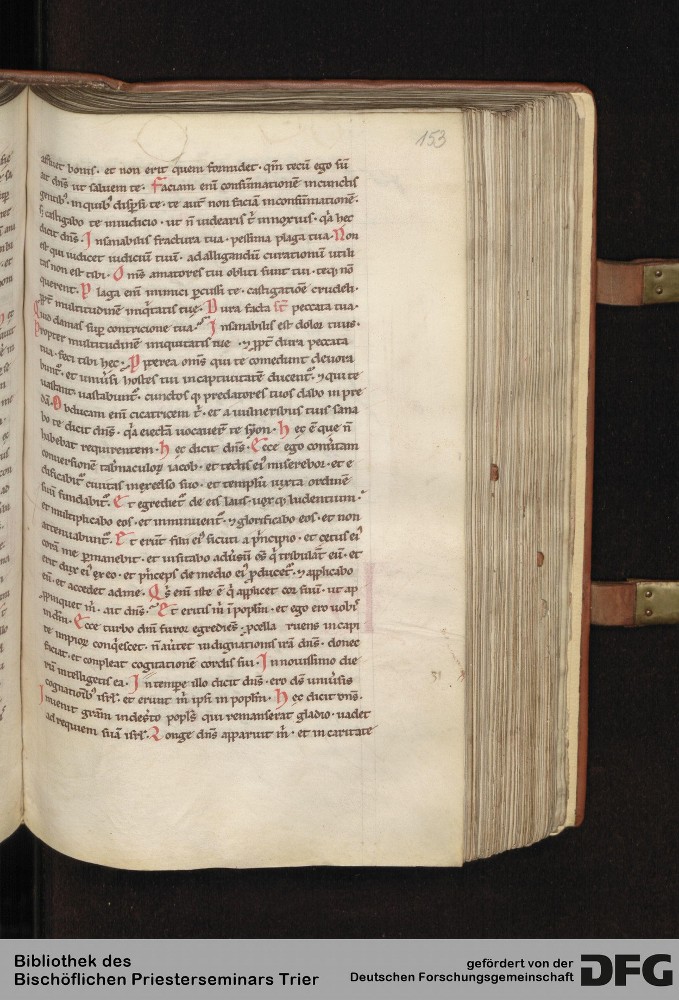 153
affluet bonis · et non erit quem formidet · qm̄ tecū ego sū
ait dn̄s ut saluem te · Faciam eni͞ consūmationē in cunctis
gentib; in quib; dispsi te · te aut̄ non faciā in consūmationē ·
s; castigabo te in iudicio · ut n̄ uidearis t͞ innoxius · q̄a hęc
dicit dn̄s · Insanabilis fractura tua · pessima plaga tua · Non
est qui iudicet iudiciū tuū · ad alligandū curationū utili
tas non est tibi · Om̄s amatores tui obliti sunt tui · teq; nō
querent · Plaga enī inimici p̄cussi te · castigatiōe crudeli ·
p̄pt̄ multitudinē iniq̇tatis tuę · Dura facta st̄ peccata tua ·
Quid clamas sup̄ contricione tua · Insanabilis est dolor tuus ·
Propter multitudinē iniquitatis tue · ⁊ p̄pt̄ dura peccata
tua · feci tibi hęc · Propterea om̄s qui te comedunt deuora
bunt̄ · et uniūsi hostes tui in captiuitatē ducent̄ · ⁊ qui te
uastant uastabunt̄ · cunctos q; predatores tuos dabo in pre
dā · Obducam enī cicatricem t̄ · et a uulneribus tuis sana
bo te dicit dn̄s · q̄a eiectā uocauer̄ te syon · Hęc ē que n̄
habebat requirentem · Hęc dicit dn̄s · Ecce ego conūtam
conuersionē tab̄naculoꝝ iacob · et tectis ei; miserebor · et ę
dificabit̄ ciuitas in excelso suo · et templū iuxta ordinē
suū fundabit̄ · Et egrediet̄ de eis laus · uoxq; ludentium ·
et multiplicabo eos · et n̄ inminuent̄ · ⁊ glorificabo eos · et non
attenuabunt̄ · Et erūt filii ei; sicuti a p̄ncipio · et cetus ei;
corā me p̄manebit · et uisitabo adūsū os̄ q̇ tribulāt eū · et
erit dux ei; ex eo · et p̄nceps de medio ei; p̄ducet̄ · ⁊ applicabo
eū · et accedet ad me · Qs̄ enī iste ē q̇ applicet cor suū · ut ap
p̄pinquet m̄ · ait dn̄s · Et eritis m̄ ī poplm̄ · et ego ero uob̄
in dm̄ · Ecce turbo dn̄i furor egrediēs · pcella ruens in capi
te impioꝝ conq̇escet · n̄ auūtet irā indignationis dn̄s · donec
faciat · et conpleat cogitationē cordis sui · In nouissimo die
rū intelligetis ea · In tempr̄e illo dicit dn̄s · ero ds̄ uniūsis
cognationib; isrl̄ · et erunt m̄ ipsi in poplm̄ · Hęc dicit dn̄s ·
Inuenit grām in deserto popls̄ qui remanserat gladio · uadet
ad requiem suā isrl̄ · Longe dn̄s apparuit m̄ · et in caritate
Bibliothek des
Bischöflichen Priesterseminars Trier
gefördert von der
Deutschen Forschungsgemeinschaft
DFG